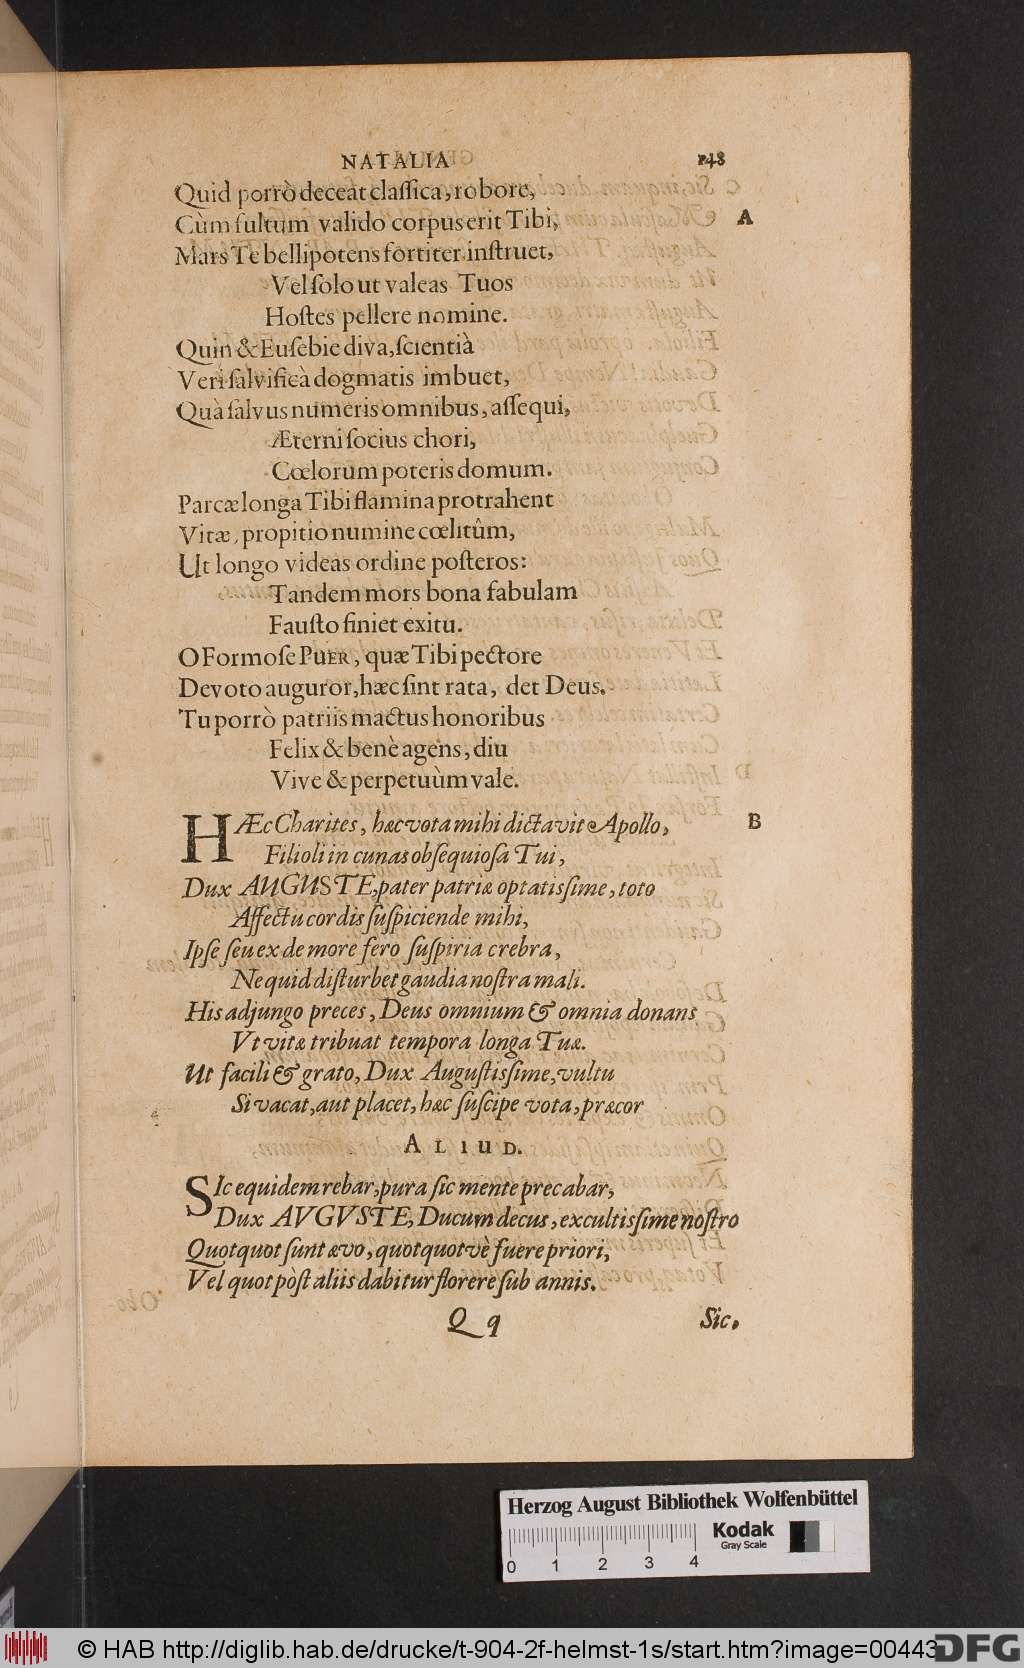 NATALIA
Quid porrò deceat classica, robore,
Cùm fultum valido corpus erit Tibi,
A
Mars Te bellipotens fortiter instruet,
Vel solo ut valeas Tuos
Hostes pellere nomine.
Quin & Eusebie diva, scientià
Veri salvificà dogmatis imbuet,
Quà salvus numeris omnibus, assequi,
Æterni socius chori,
Cœlorum poteris domum.
Parcæ longa Tibi flamina protrahent
Vitæ, propitio numine cœlitûm,
Ut longo videas ordine posteros:
Tandem mors bona fabulam
Fausto finiet exitu.
O Formose PUER, quæ Tibi pectore
Devoto auguror, hæc sint rata, det Deus.
Tu porrò patriis mactus honoribus
Felix & benè agens, diu
Vive & perpetuùm vale.
HÆc Charites, hæc vota mihi dictavit Apollo,
B
Filioli in cunas obsequiosa Tui,
Dux AUGUSTE, pater patriæ optatissime, toto
Affectu cordis suspiciende mihi,
Ipse seu ex de more fero suspiria crebra,
Ne quid disturbet gaudia nostra mali.
His adjungo preces, Deus omnium & omnia donans
Vt vitæ tribuat tempora longa Tuæ.
Ut facili & grato, Dux Augustissime, vultu
Si vacat, aut placet, hæc suscipe vota, præcor
ALIUD.
SIc equidem rebar, pura sic mente precabar,
Dux AVGVSTE, Ducum decus, excultissime nostro
Quotquot sunt ævo, quotquotvè fuere priori,
Vel quot pòst aliis dabitur florere sub annis.
Q q
Sic,
Herzog August Bibliothek Wolfenbüttel
Kodak
Gray Scale
0 1 2 3 4
© HAB http://diglib.hab.de/drucke/t-904-2f-helmst-1s/start.htm?image=00443
DFG